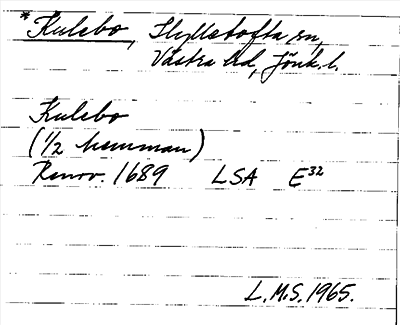 *Kulebo, Hylletofta sn,
Västra hd, Jönk. l.
Kulebo
(1/2 hemman)
Renov. 1689 LSA E32
L.M.S. 1965.